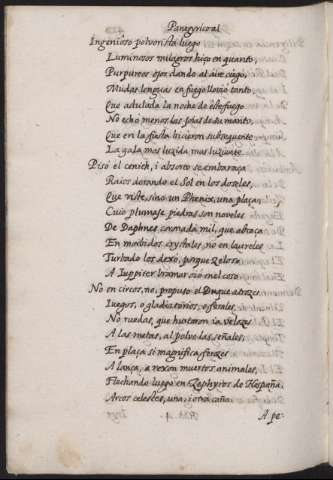 Panegyrico al
Ingenioso polvorista luego
Luminosos milagros hiço en quanto,
Purpureos ojos dando al aire ciego,
Mudas lenguas en fuego llovio tanto,
Que adulada la noche de este fuego
No echò menos los joias de su manto,
Que en la fiesta hicieron subsequente
La gala mas luzida mas luziente.
Pisó el cenith, i absorto se embaraça
Raios dorando el Sol en los doseles,
Que viste, sino un Phenix, una plaça,
Cuio plumaje piedras son noveles
De Daphnes coronada mil, que abraça
En mórbidos crystales, no en laureles
Turbado los dexó, porque zelosa
A Iuppiter bramar oió en el coso.
No en circos, no, propuso el Duque atroces
Iuegos, o gladiatorios, o ferales,
No ruedas, que hurtaron ia veloces
A las metas, al polvo las señales,
En plaça si magnifica feroces
A lança, a rexon muertos animales,
Flechando luego en Zephyros de Hespaña,
Arcos celestes, una, i otra caña.
A pe-